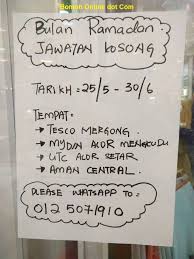 Bomoh Online dot Com
Bulan Ramadan.
JAWATAN KOSONG
TARIKH = 25/5 - 30/6
TEMPAT:
→ TESCO MERGONG.
→ MYDIN ALOR MENGKUDU
→ UTC ALOR SETAR
→ AMAN CENTRAL.
PLEASE WHATSAPP TO =
012 5071910